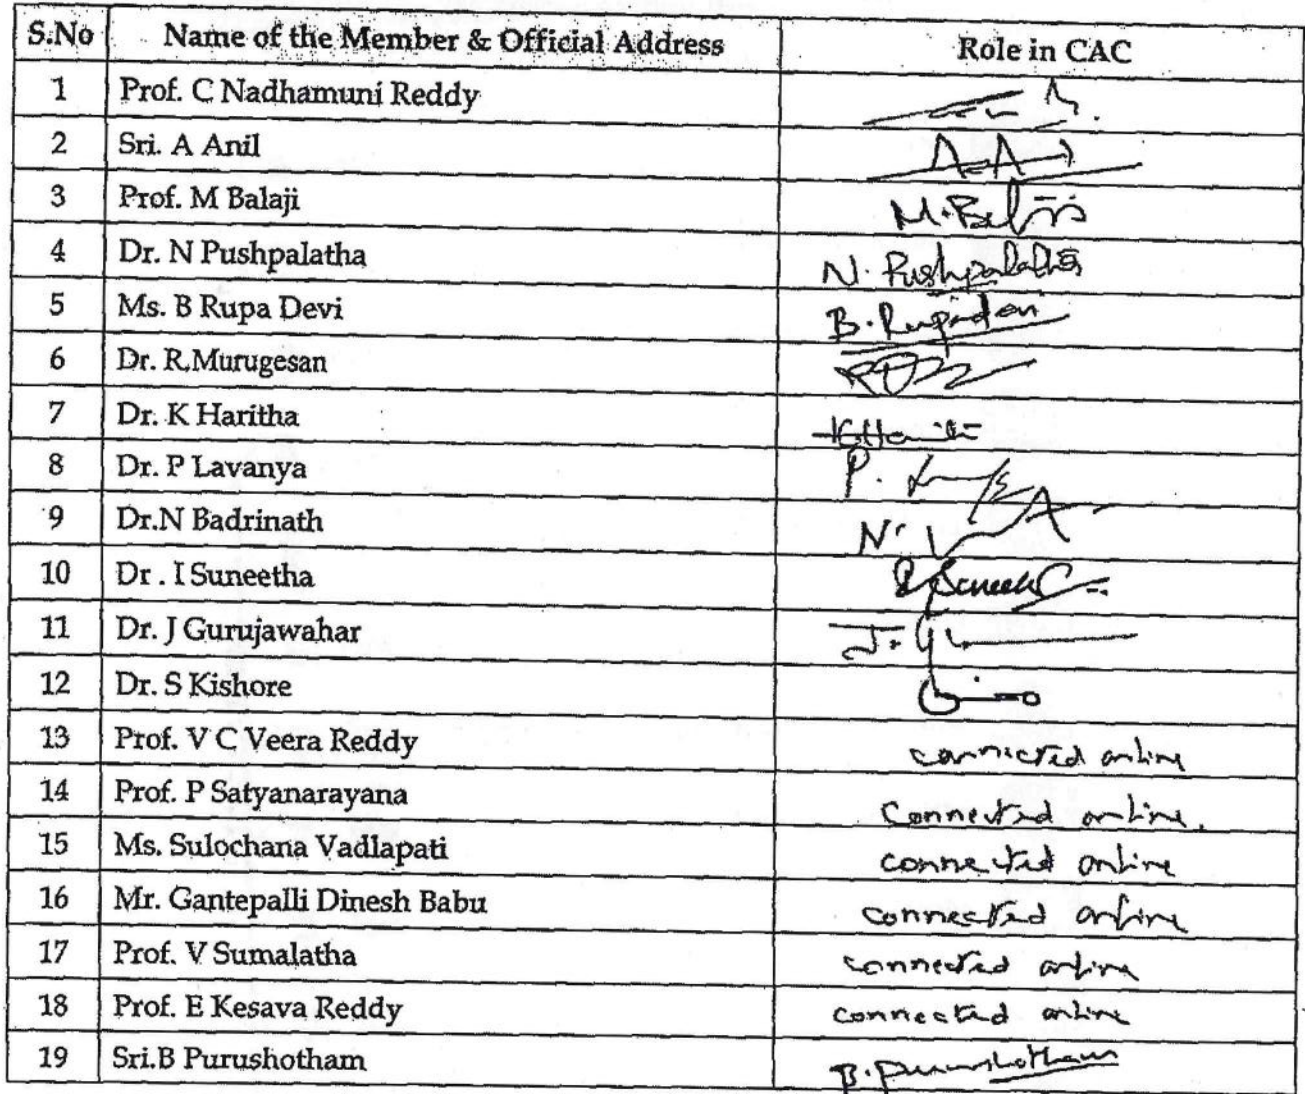 S.No Name of the Member & Official Address Role in CAC
1 Prof. C Nadhamuni Reddy
2 Sri. A Anil
3 Prof. M Balaji M. Balaji
4 Dr. N Pushpalatha N. Pushpalatha
5 Ms. B Rupa Devi B. Rupadevi
6 Dr. R.Murugesan
7 Dr. K Haritha K Haritha
8 Dr. P Lavanya P.
9 Dr.N Badrinath N.
10 Dr . I Suneetha Suneetha
11 Dr. J Gurujawahar J.
12 Dr. S Kishore
13 Prof. V C Veera Reddy connected online
14 Prof. P Satyanarayana Connected online.
15 Ms. Sulochana Vadlapati connected online
16 Mr. Gantepalli Dinesh Babu connected online
17 Prof. V Sumalatha connected online
18 Prof. E Kesava Reddy connected online
19 Sri.B Purushotham B. Purushotham